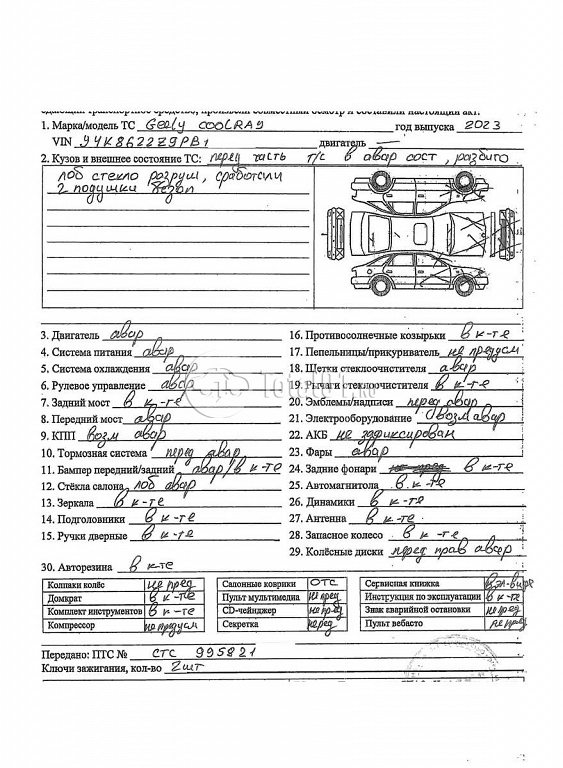 1. Марка/модель ТС Geely COOLRAY год выпуска 2023
VIN двигатель —
2. Кузов и внешнее состояние ТС: перед часть т/с в авар сост, разбито
лоб стекло розруш, сработали
2 подушки безоп
3. Двигатель авар
4. Система питания авар
5. Система охлаждения авар
6. Рулевое управление авар
7. Задний мост в к-те
8. Передний мост авар
9. КПП возм авар
10. Тормозная система перед авар
11. Бампер передний/задний авар/в к-те
12. Стёкла салона лоб авар
13. Зеркала в к-те
14. Подголовники в к-те
15. Ручки дверные в к-те
16. Противосолнечные козырьки в к-те
17. Пепельницы/прикуриватель не предусм
18. Щетки стеклоочистителя авар
19. Рычаги стеклоочистителя в к-те
20. Эмблемы/надписи перед авар
21. Электрооборудование возм авар
22. АКБ не зафиксирован
23. Фары авар
24. Задние фонари в к-те
25. Автомагнитола в к-те
26. Динамики в к-те
27. Антенна в к-те
28. Запасное колесо в к-те
29. Колёсные диски перед прав авар
30. Авторезина в к-те
Колпаки колёс не пред
Домкрат в к-те
Комплект инструментов в к-те
Компрессор не предусм
Салонные коврики отс
Пульт мультимедиа не пред
CD-чейнджер не пред
Секретка
Сервисная книжка в эл-виде
Инструкция по эксплуатации в к-те
Знак аварийной остановки не пред
Пульт вебасто не пред
Передано: ПТС № СТС 995821
Ключи зажигания, кол-во 2 шт